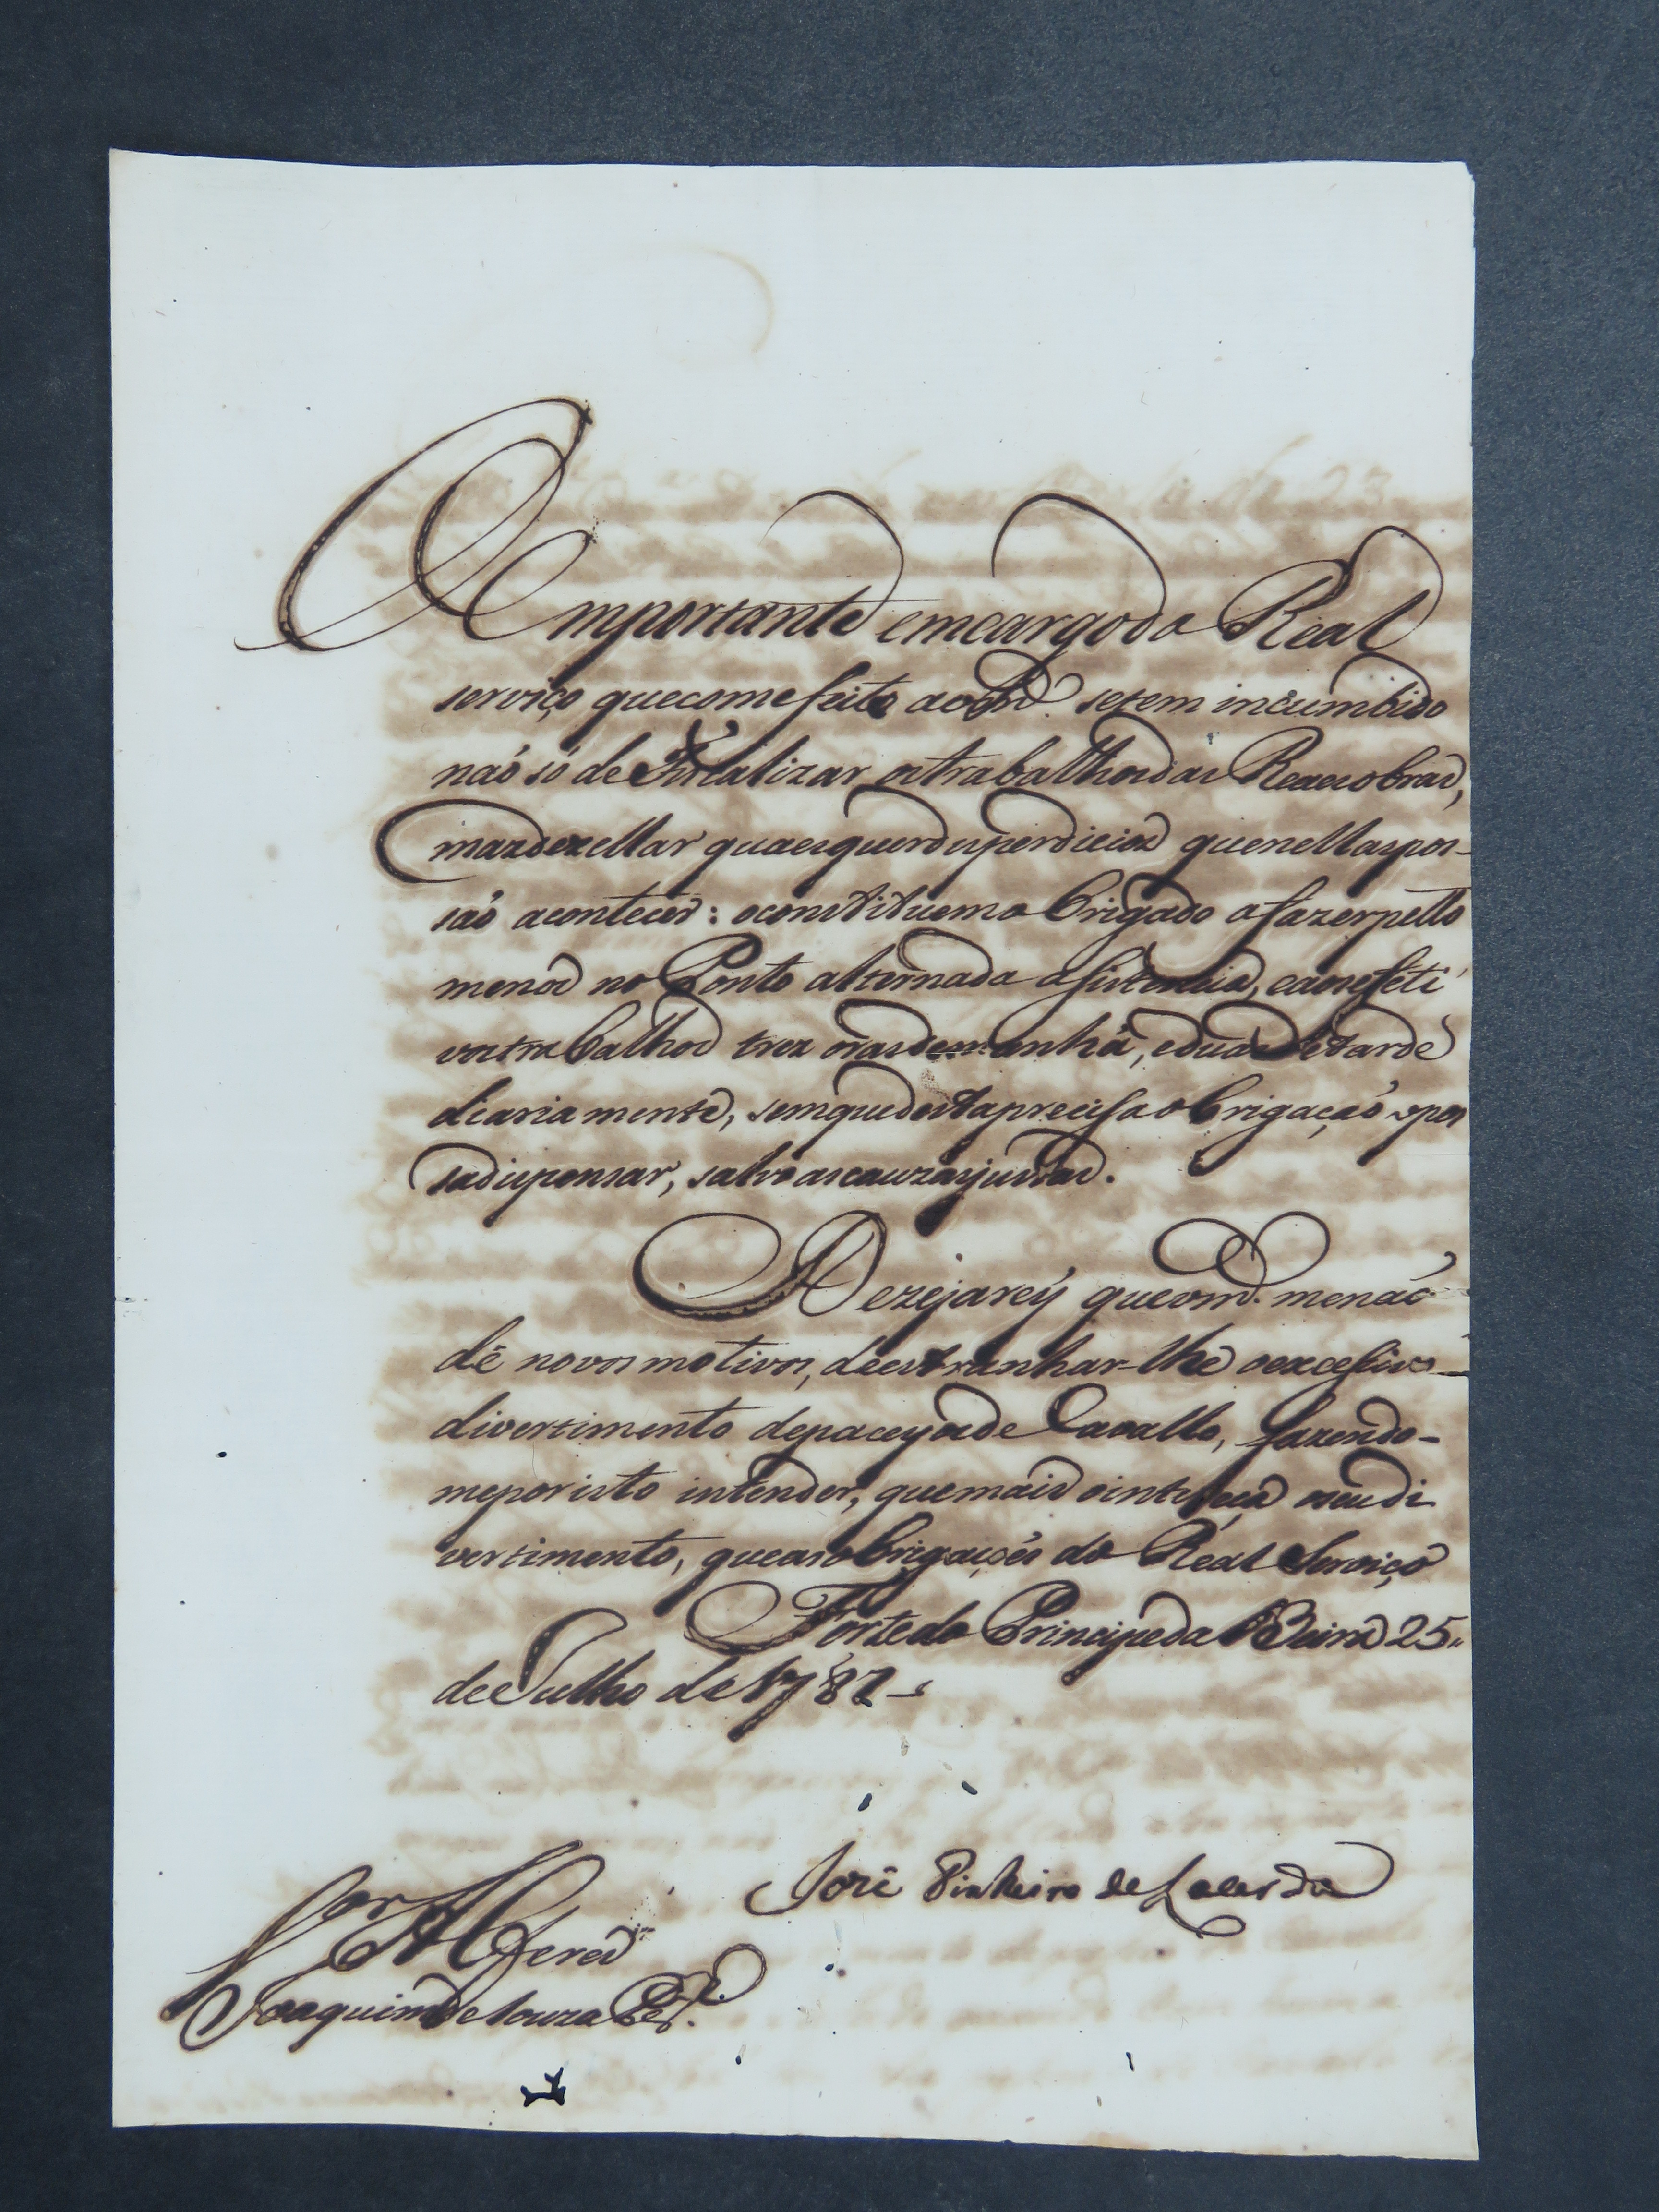 O Importante emcargo do Real
serviço que com efeito ao vm.ce se tem incumbido
não só de Fiscalizar os trabalhos das Reaes obras,
mas de zellar quaesquer disperdicios que nellas pos-
são acontecer: o constituem obrigado a fazer pello
menos no Ponto alternada asistencia, e aos efeti
vos trabalhos trez oras de manhã, e duas de tarde
diariamente, sem que desta preciza obrigação o pos
sa dispensar, salvo as cauzas justas.
Dezejarey que vm.ce me não
dê novos motivos, de estranhar-lhe o excesivo
divertimento de paceyos de Cavallo, fazendo-
me por isto intender, que mais o intereça o seu di
vertimento, que as obrigações do Real Serviço
Forte do Principe da Beira 25
de Julho de 1787
José Pinheiro de Lacerda
S.or Alferes
Joaquim de Souza Per.a